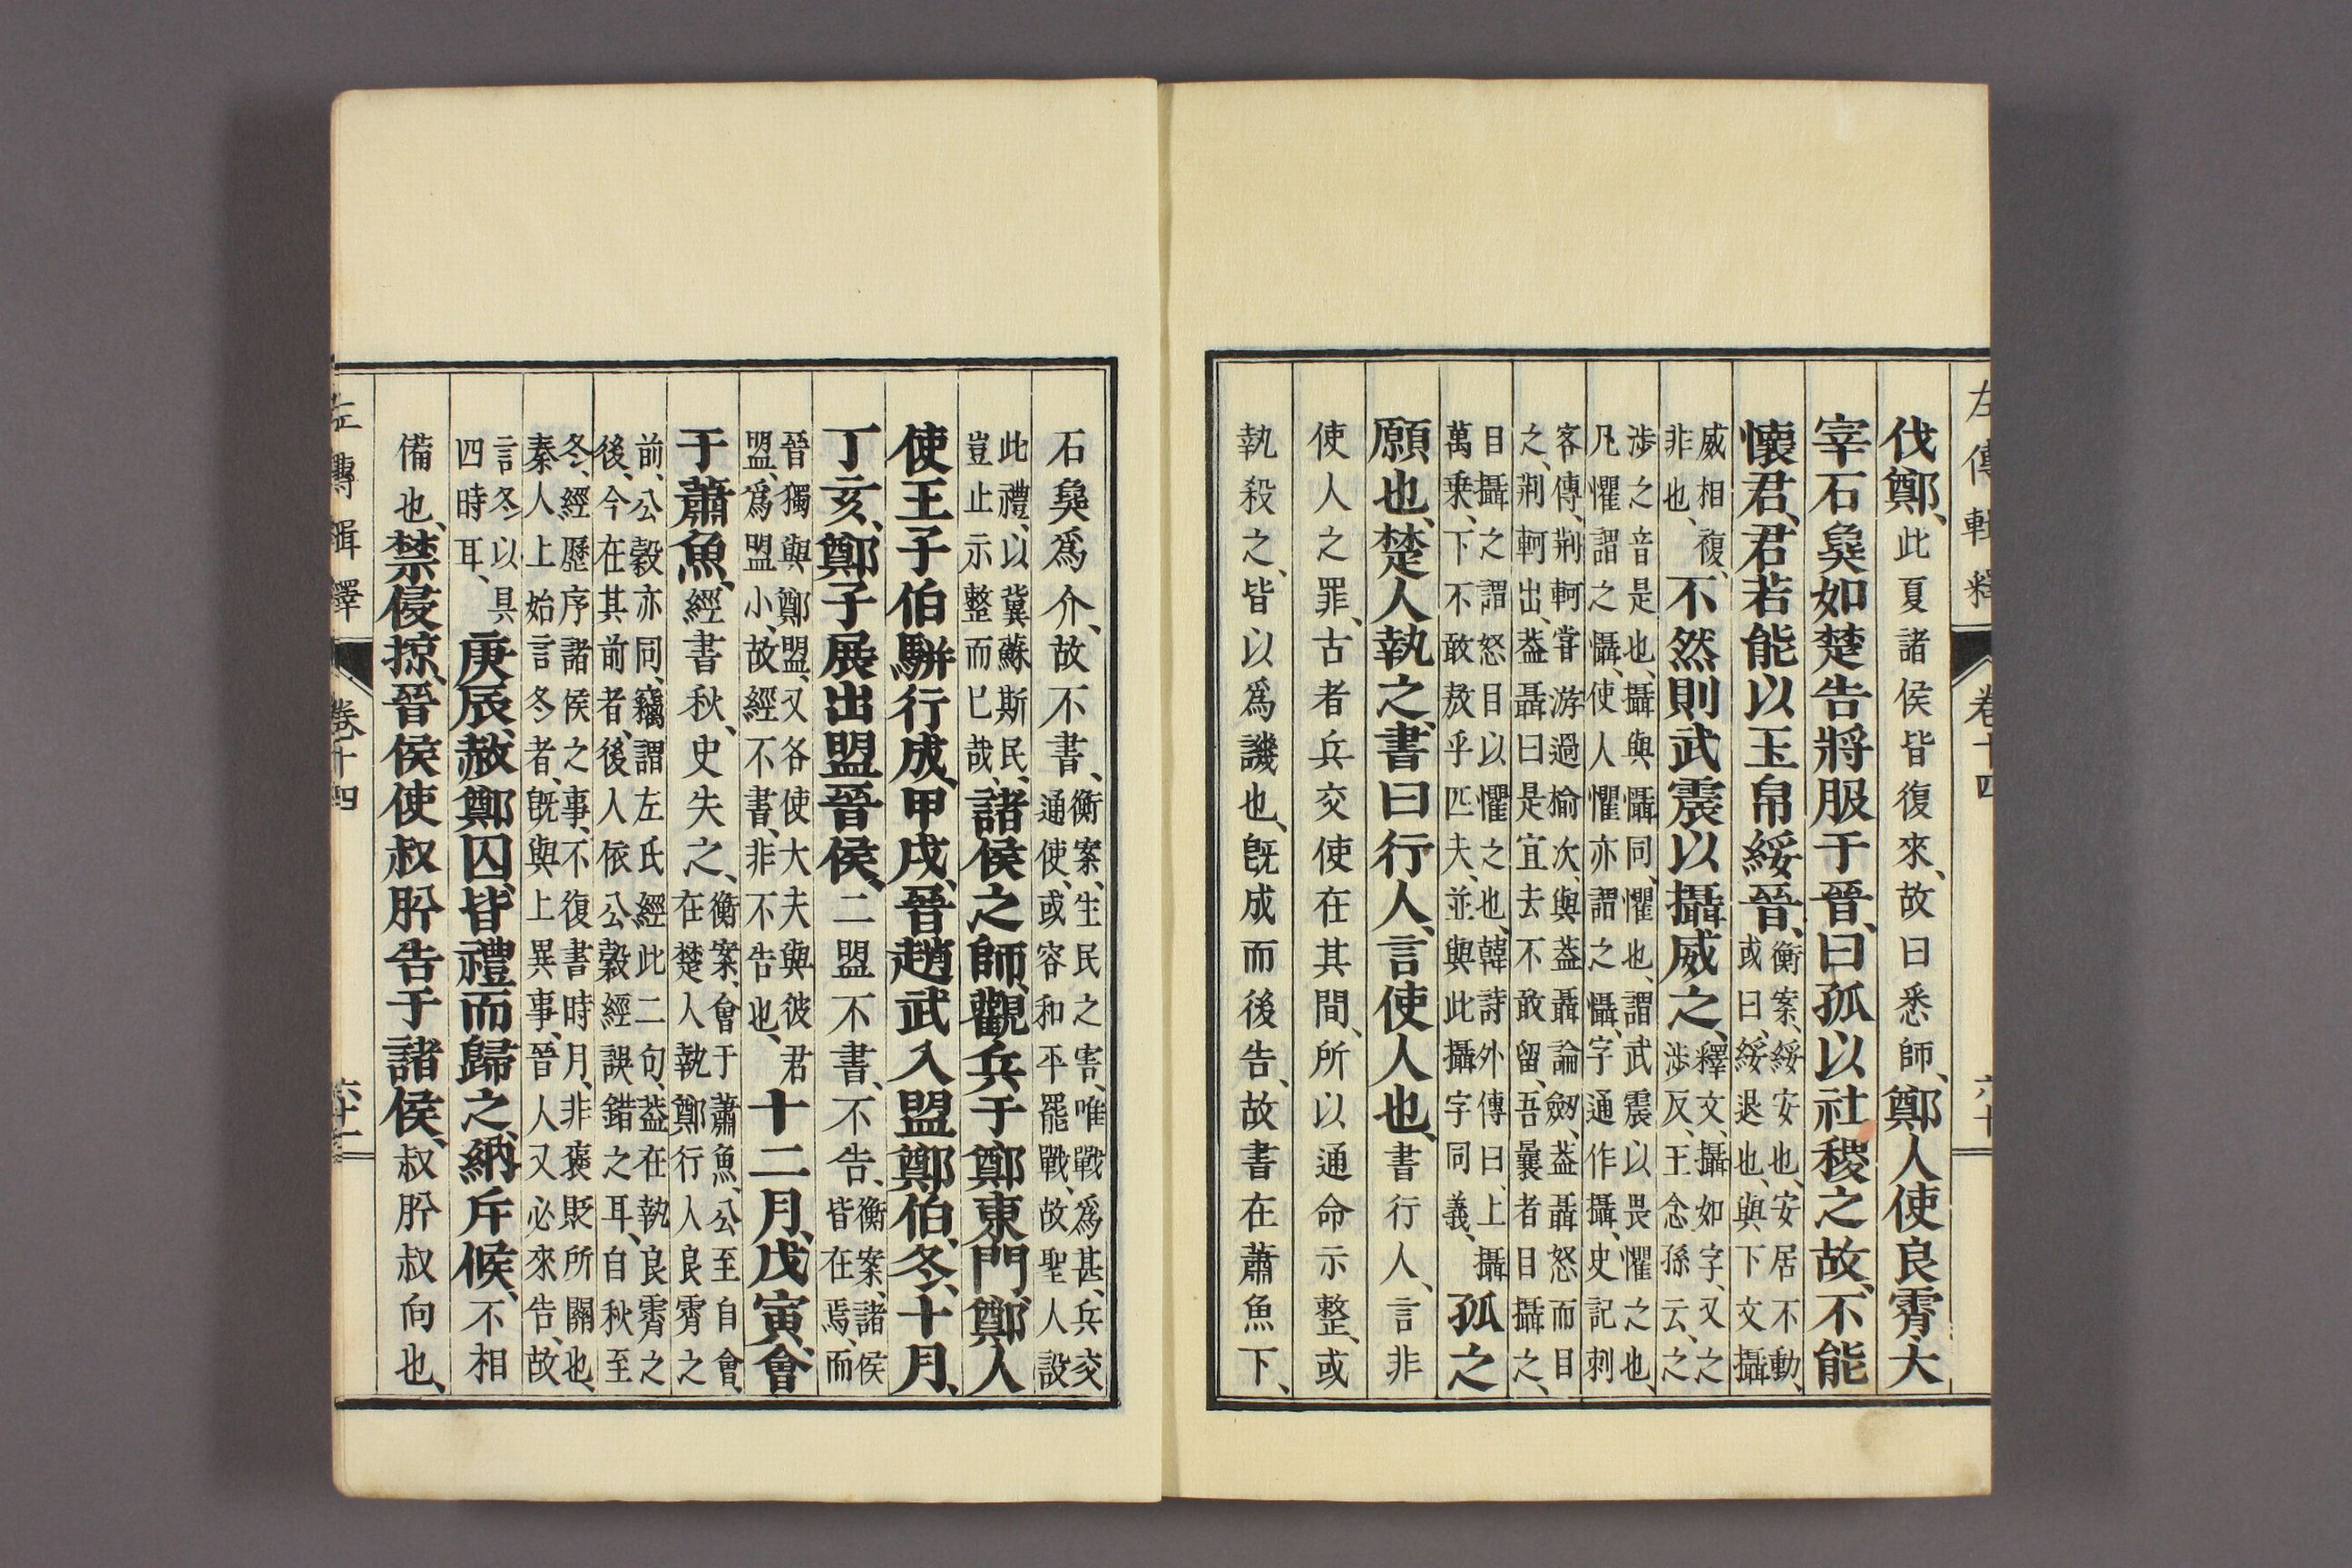 左傳輯釋 卷十四 六十
伐鄭、此夏諸侯皆復來、故曰悉師、鄭人使良霄大
宰石㚟如楚、告將服于晉、曰孤以社稷之故、不能
懷君、君若能以玉帛綏晉、衡案、綏安也、安居不動、或曰、綏退也、與下文攝
威相複、非也、不然則武震以攝威之、釋文、攝如字、又之涉反、王念孫云、之
涉之音是也、攝與懾同、懼也、謂武震以畏懼之也、凡懼謂之懾、使人懼亦謂之懾、字通作攝、史記刺
客傳、荊軻甞游過榆次、與葢聶論劒、葢聶怒而目之、荊軻出、葢聶曰、是宜去不敢留、吾曩者目攝之、
目攝之謂怒目以懼之也、韓詩外傳曰、上攝萬乘、下不敢敖乎匹夫、並與此攝字同義、孤之
願也、楚人執之、書曰行人、言使人也、書行人、言非
使人之罪、古者兵交使在其間、所以通命示整、或
執殺之、皆以爲譏也、旣成而後告、故書在蕭魚下、
石㚟爲介、故不書、衡案、生民之害、唯戰爲甚、兵交通使、或容和平罷戰、故聖人設
此禮、以冀蘇斯民、豈止示整而已哉、諸侯之師、觀兵于鄭東門、鄭人
使王子伯駢行成、甲戌、晉趙武入盟鄭伯、冬、十月、
丁亥、鄭子展出盟晉侯、二盟不書、不告、衡案、諸侯皆在焉、而
晉獨與鄭盟、又各使大夫與彼君盟、爲盟小、故經不書、非不告也、十二月、戊寅、會
于蕭魚、經書秋、史失之、衡案、會于蕭魚、公至自會、在楚人執鄭行人良霄之
前、公穀亦同、竊謂左氏經此二句、葢在執良霄之後、今在其前者、後人依公穀經誤錯之耳、自秋至
冬、經歷序諸侯之事、不復書時月、非褒貶所關也、秦人上始言冬者、旣與上異事、晉人又必來告、故
言冬以具四時耳、庚辰、赦鄭囚、皆禮而歸之、納斥候、不相
備也、禁侵掠、晉侯使叔肸告于諸侯、叔肸叔向也、
左傳輯釋 卷十四 六十一